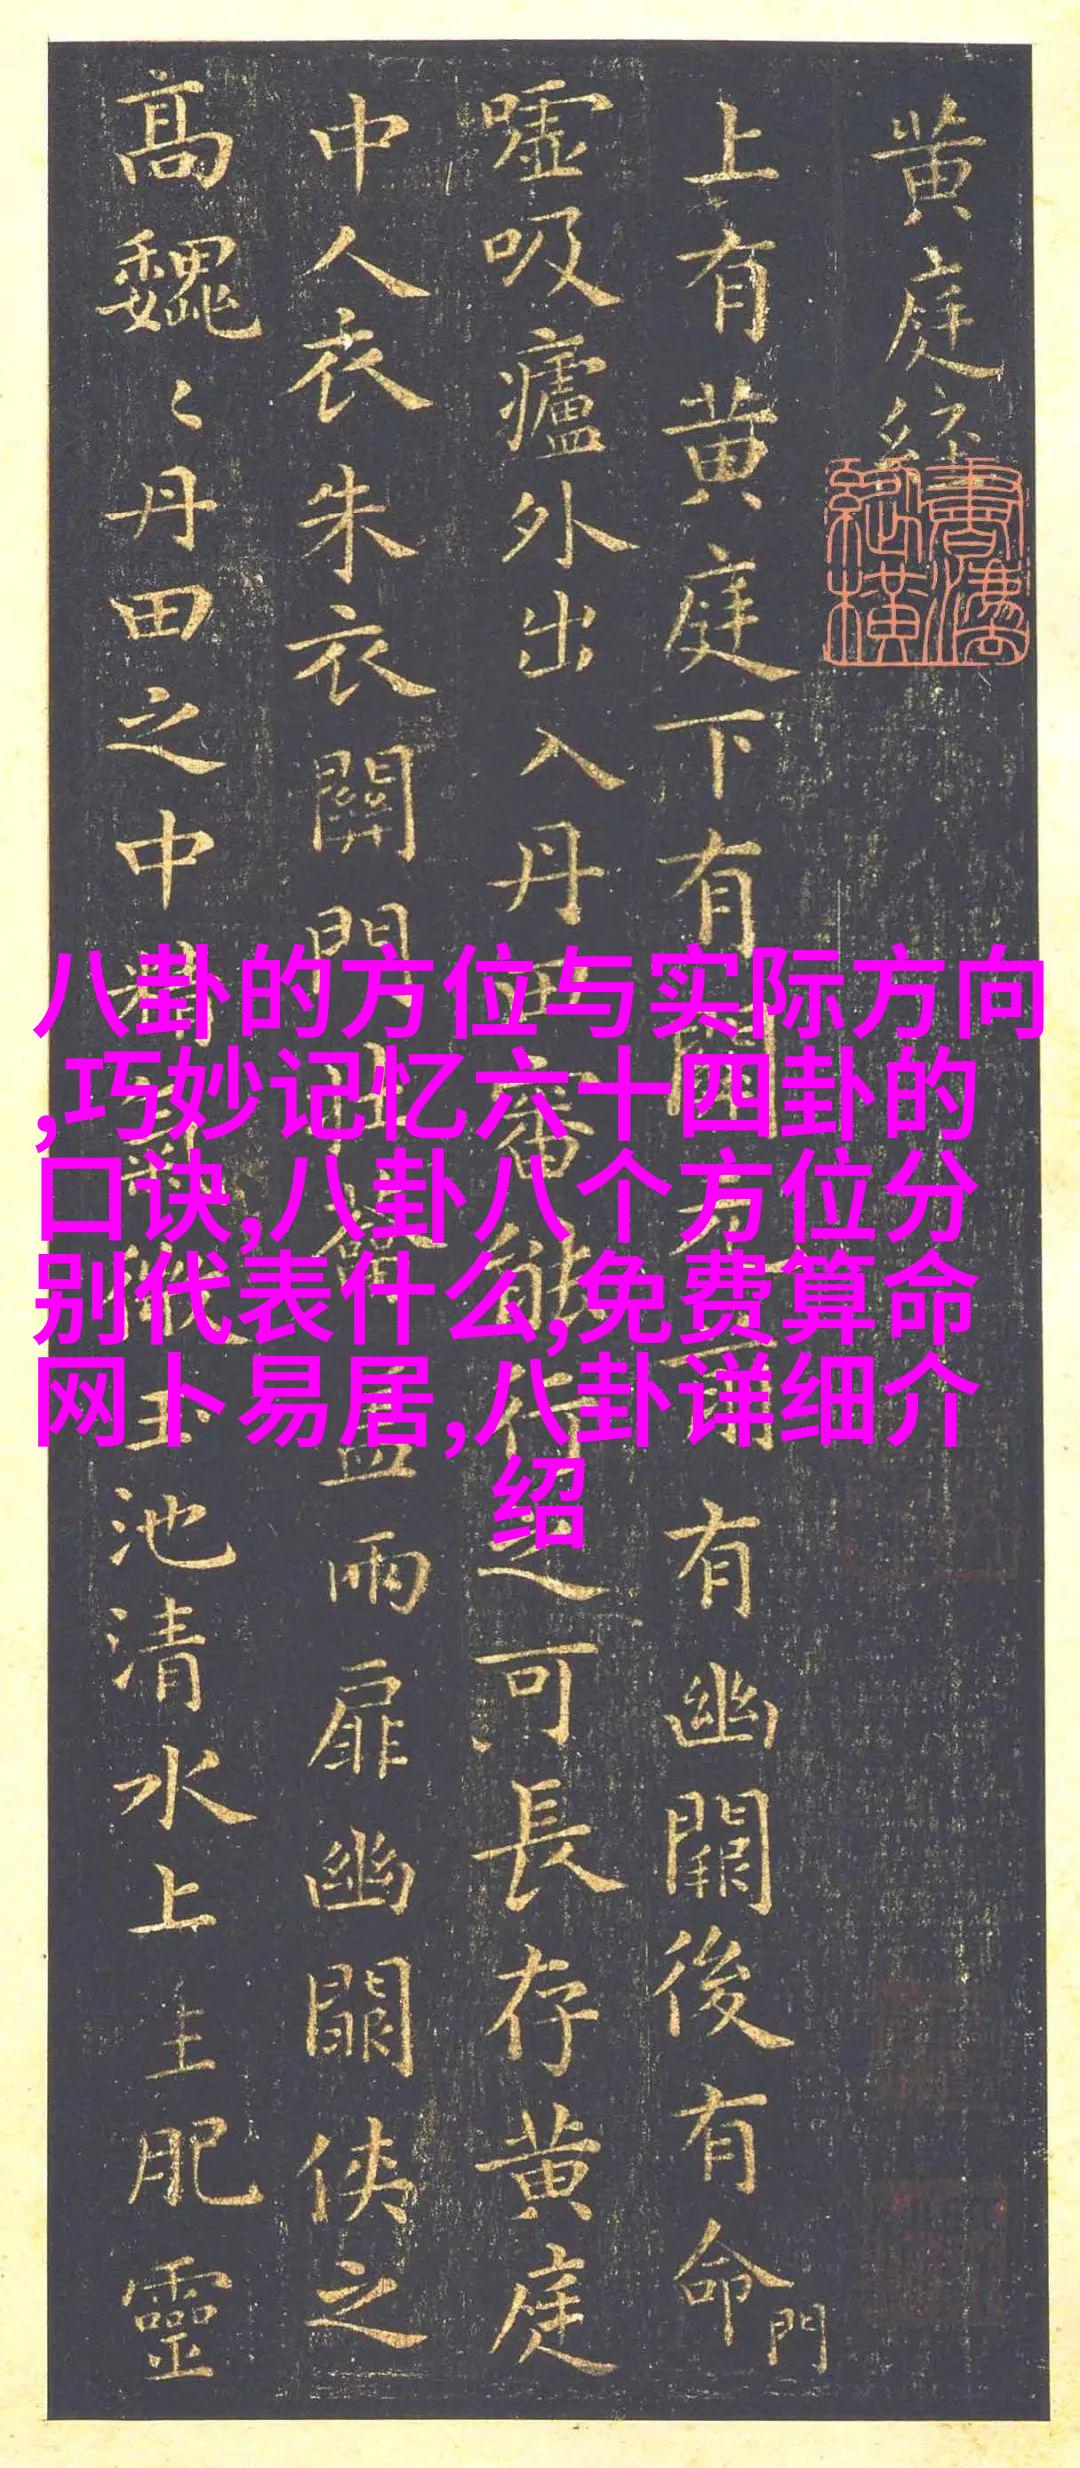 黄庭經
上有黄庭下有關元前有幽闕後有命門
嘘吸廬外出入丹田審能行之可長存黄庭
中人衣朱衣關門壯籥盖兩扉幽闕俠之
高魏〻丹田之中精氣微玉池清水上生肥靈
八卦的方位与实际方向
,巧妙记忆六十四卦的
口诀,八卦八个方位分
别代表什么,免费算命
网卜易居,八卦详细介
绍